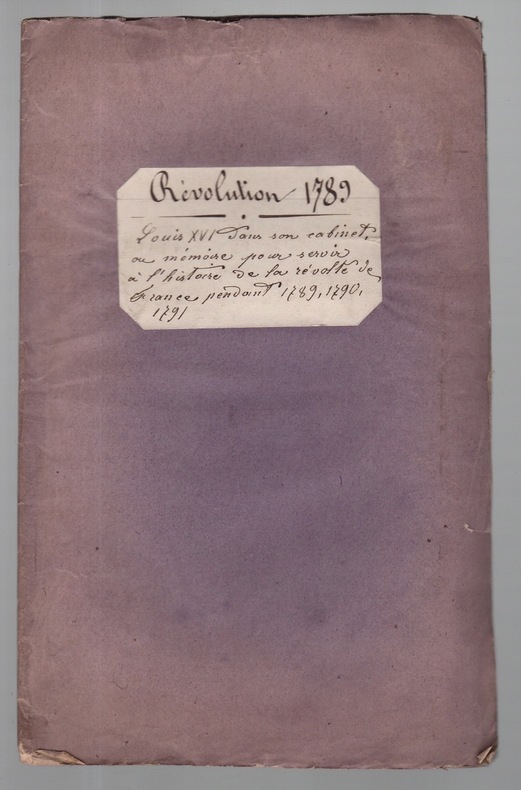 Révolution 1789
Louis XVI dans son cabinet,
ou mémoire pour servir
à l'histoire de la révolte de
France pendant 1789, 1790,
1791